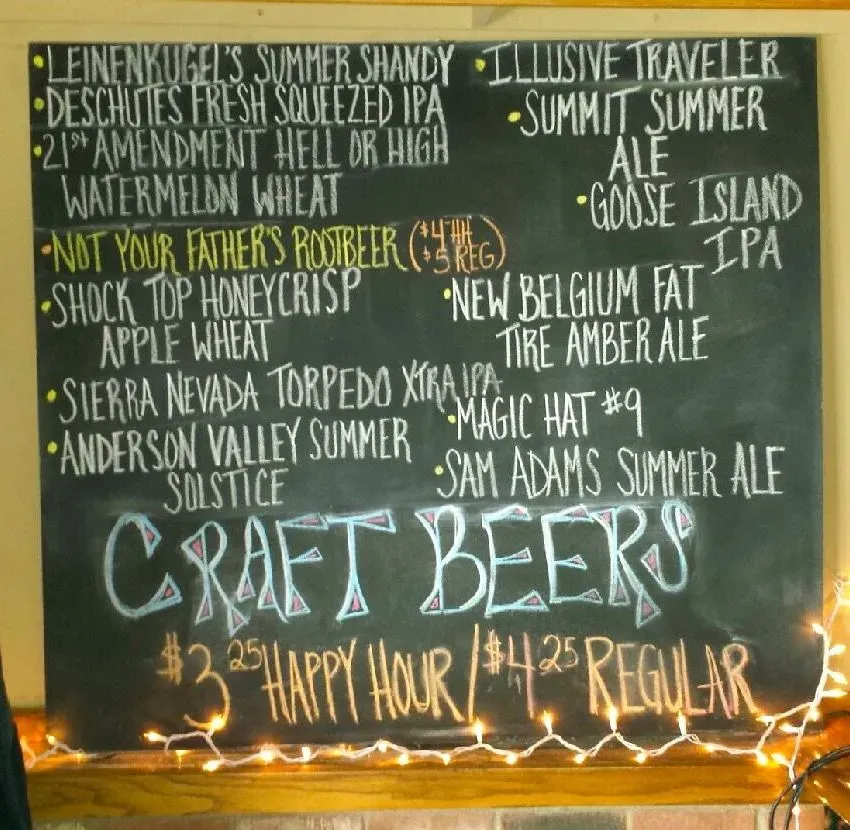 • LEINENKUGEL'S SUMMER SHANDY
• DESCHUTES FRESH SQUEEZED IPA
• 21st AMENDMENT HELL OR HIGH
WATERMELON WHEAT
• NOT YOUR FATHER'S ROOTBEER ($4 HH
$5 REG)
• SHOCK TOP HONEYCRISP
APPLE WHEAT
• SIERRA NEVADA TORPEDO XTRA IPA
• ANDERSON VALLEY SUMMER
SOLSTICE
• ILLUSIVE TRAVELER
• SUMMIT SUMMER
ALE
• GOOSE ISLAND
IPA
• NEW BELGIUM FAT
TIRE AMBER ALE
• MAGIC HAT #9
• SAM ADAMS SUMMER ALE
CRAFT BEERS
$3 25 HAPPY HOUR / $4 25 REGULAR